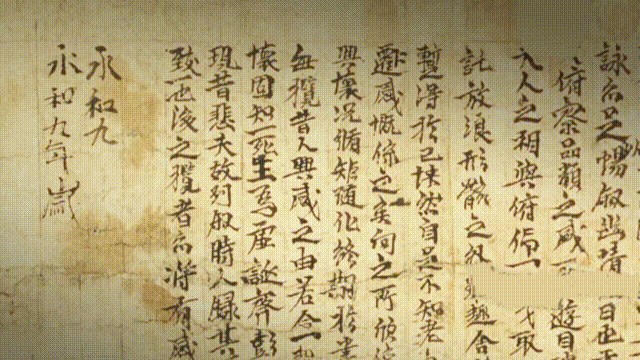 詠亦足暢叙幽情 日也天
俯察品類之盛 遊目
夫人之相與俯仰一 取
託放浪形骸之外 趣舍
暫得於己怏然自足不知老
遷感慨係之矣向之所欣
興懷況脩短隨化終期於盡
每攬昔人興感之由若合一
懷固知一死生為虛誕齊彭
現昔悲夫故列叙時人録其
致一也後之攬者亦將有感
永和九
永和九年歲